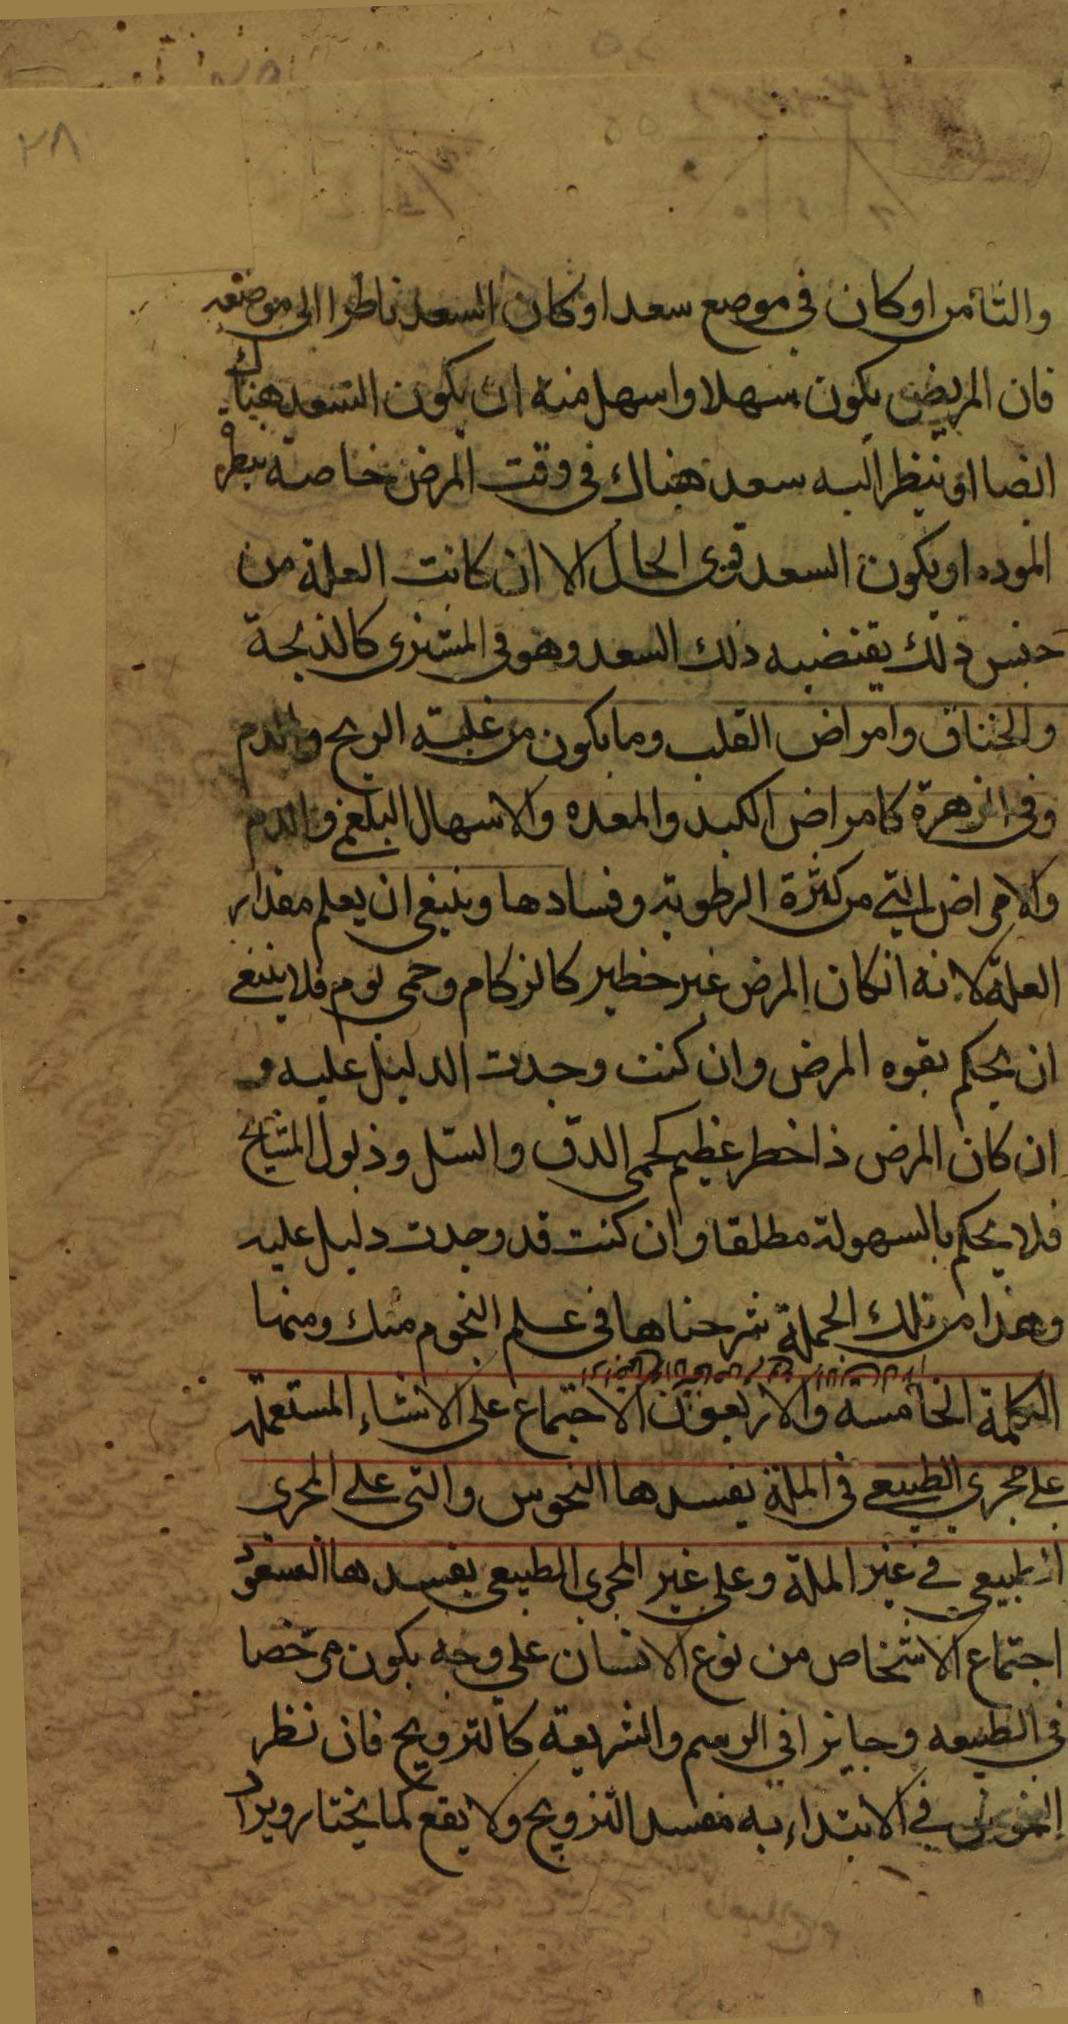 ٢٨
والثامن او كان في موضع سعد او كان السعد ناظرا الى موضعه
فان المريض يكون سهلا واسهل منه ان يكون السعد هناك
ايضا او ينظر اليه سعد هناك في وقت المرض خاصة بنظر
المودة او يكون السعد قوى الحال الا ان كانت العلة من
جنس ذلك يقتضيه ذلك السعد وهو في المشترى كالذبحة
والخناق وامراض القلب وما يكون من غلبة الريح والدم
وفي الزهرة كامراض الكبد والمعده والاسهال البلغمى والدم
والامراض التي من كثرة الرطوبة وفسادها وينبغي ان يعلم مقدار
العلة لانه ان كان المرض غير خطير كالزكام وحمى يوم فلا ينبغي
ان يحكم بقوه المرض وان كنت وجدت الدليل عليه و
ان كان المرض ذا خطر عظيم كحمى الدق والسل وذبول المشايخ
فلا يحكم بالسهولة مطلقا وان كنت قد وجدت دليل عليه
وهذا من تلك الجملة شرحناها في علم النجوم منك ومنها
الكلمة الخامسة والاربعون الاجتماع على الاشياء المستعملة
على مجرى الطبيعي في الملة يفسدها النحوس والتى على المجرى
الطبيعي في غير الملة وعلى غير المجرى الطبيعي يفسدها السعود
اجتماع الاشخاص من نوع الانسان على وجه يكون مرخصا
في الطبيعه وجايزا في الرسم والشريعة كالتزويج فان نظر
النحوس في الابتداء به مفسد التزويج ولا يقع كما يختار ويراد